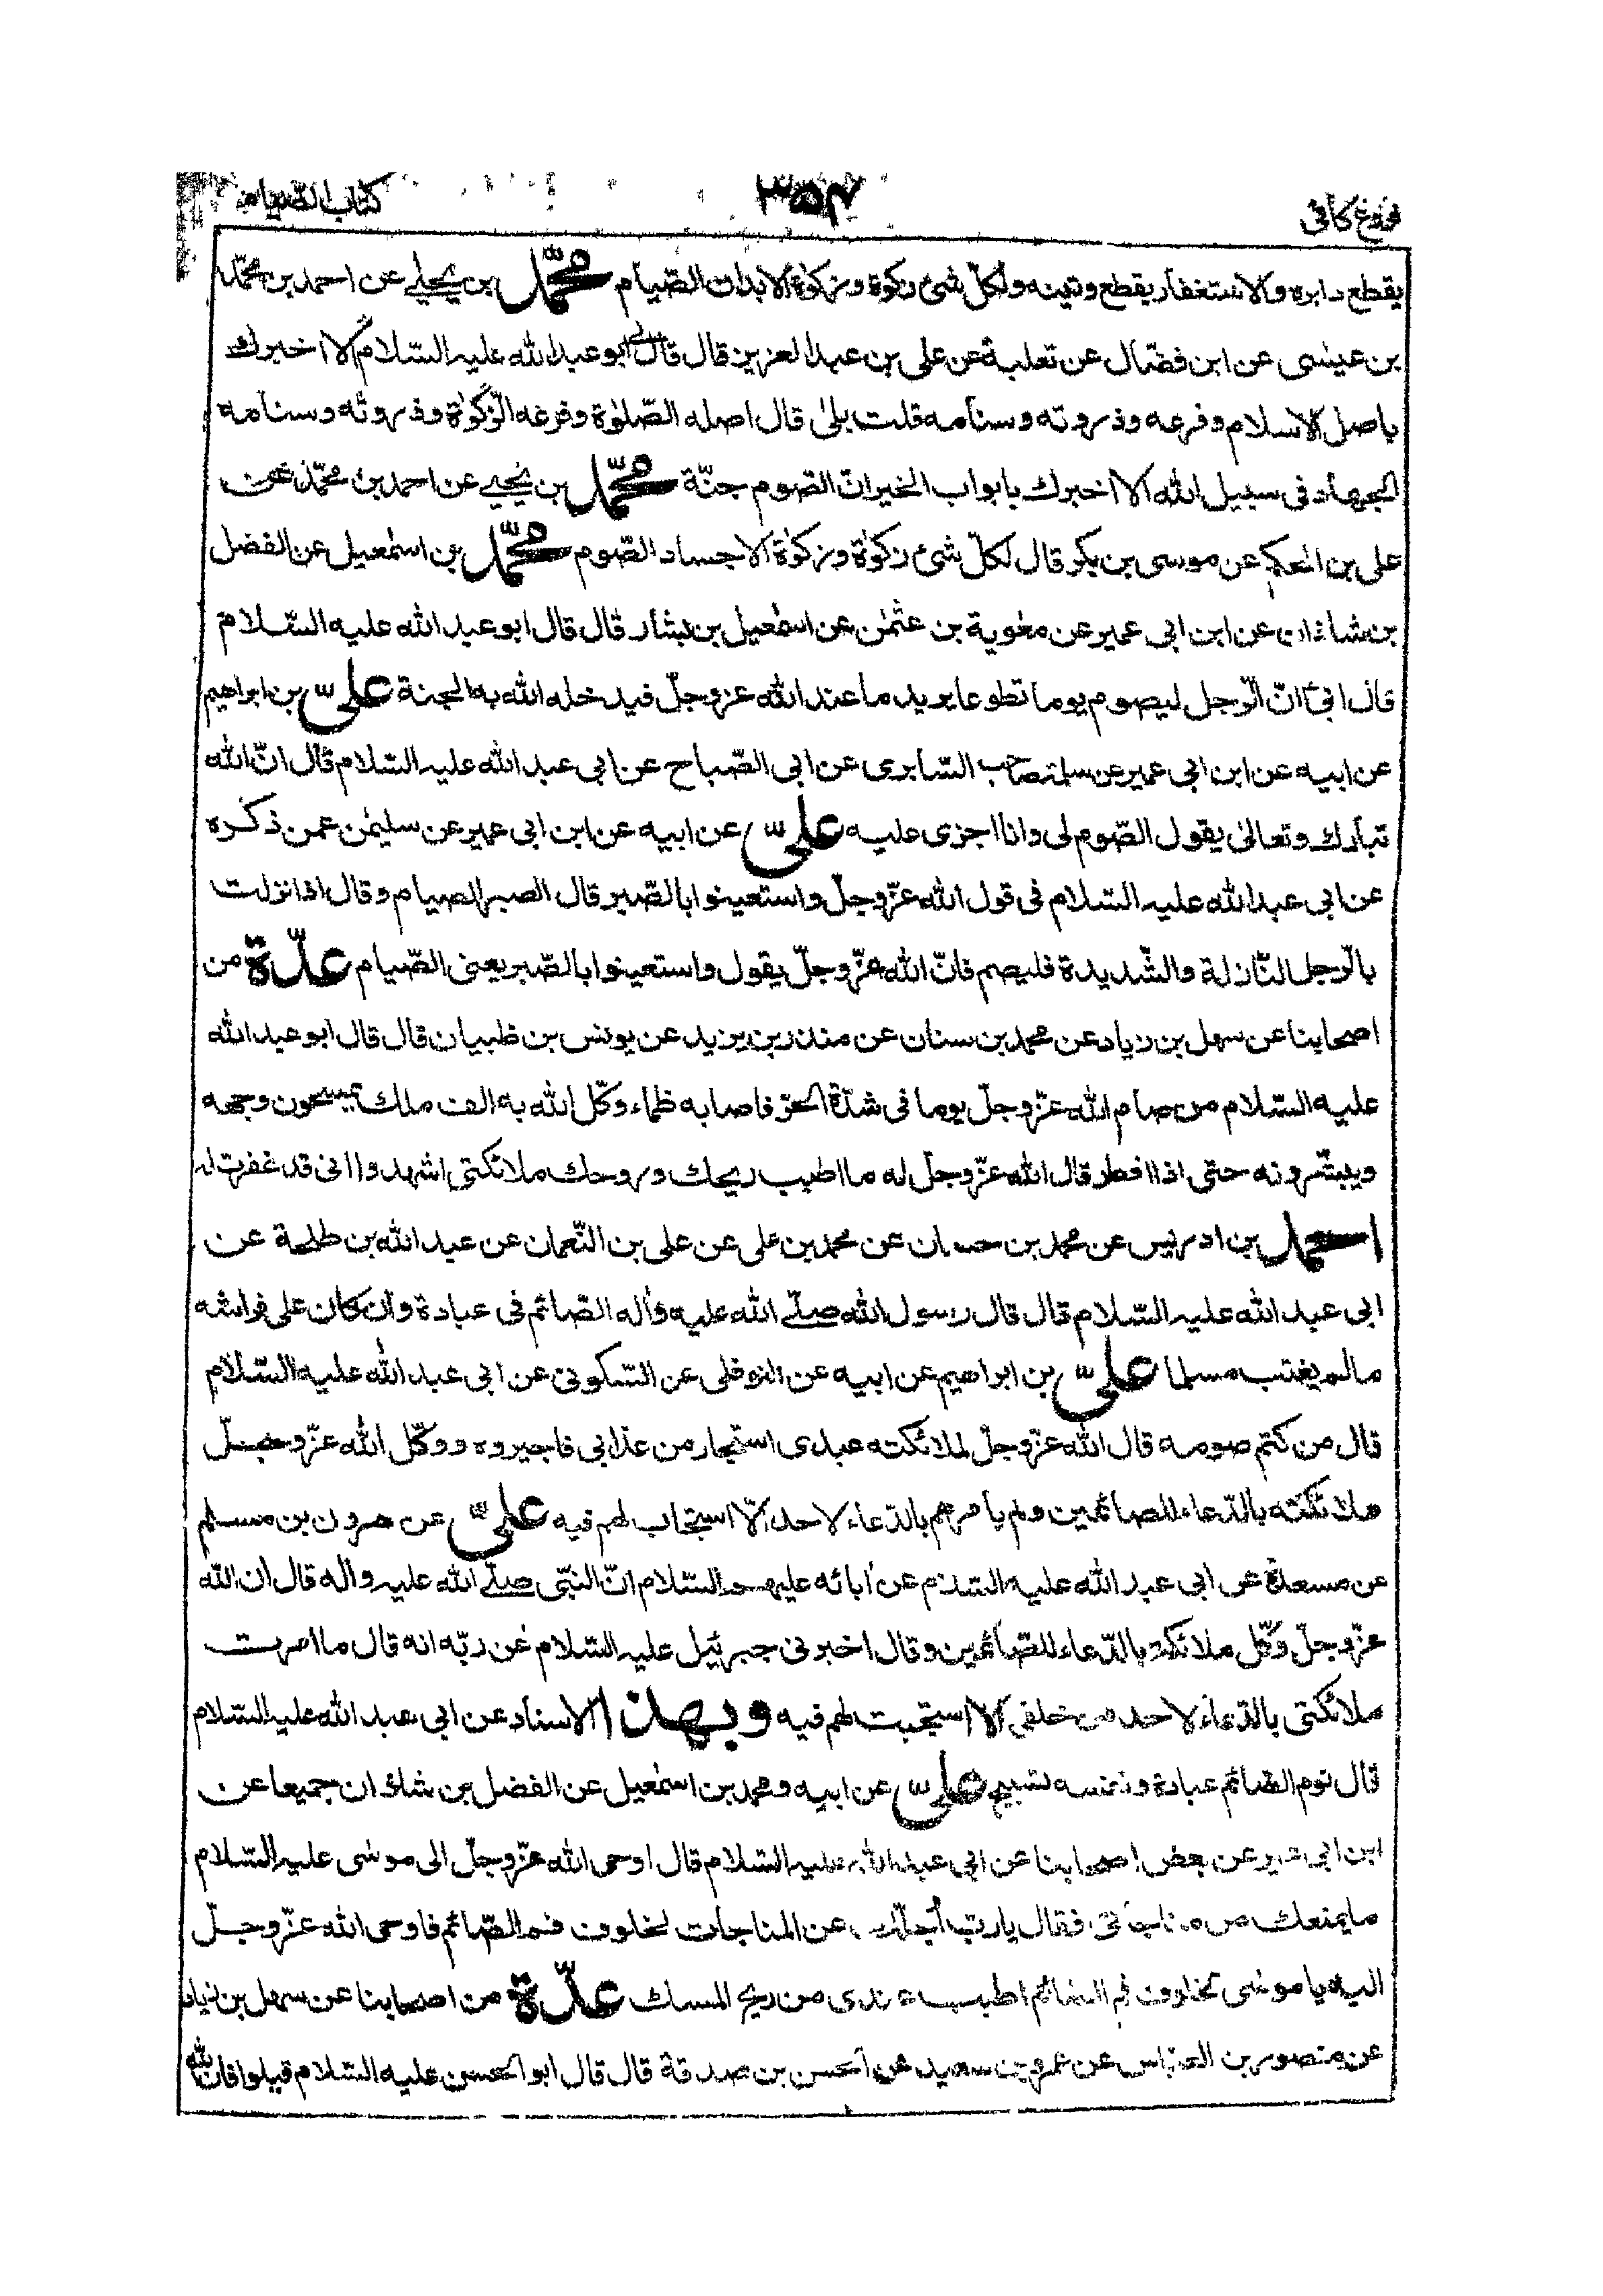 فروع كافي ٣٥٤ كتاب الصيام
يقطع دابره والاستغفار يقطع وتينه ولكلّ شئ زكوة وزكوٰة الابدان الصّيام محمّد بن يحيے عن احمد بن محمّد
بن عيسى عن ابن فضّال عن ثعلبة عن علي بن عبد العزيز قال قال لي ابو عبد الله عليه السّلام الا اخبرك
باصل الاسلام وفرعه وذروته وسنامه قلت بلىٰ قال اصله الصّلوٰة وفرعه الزّكوٰة وذروته وسنامه
الجهاد في سبيل الله الا اخبرك بابواب الخير انّ الصّوم جنّة محمّد بن يحيے عن احمد بن محمّد عن
علي بن الحكم عن موسى بن بكر قال لكلّ شئ زكوٰة وزكوٰة الاجساد الصّوم محمّد بن اسمٰعيل عن الفضل
بن شاذان عن ابن ابي عمير عن معٰوية بن عثمٰن عن اسمٰعيل بن بشار قال قال ابو عبد الله عليه السّلام
قال ابي انّ الرّجل ليصوم يوما تطوعا يريد ما عند الله عزّ وجلّ فيدخله الله به الجنة عليّ بن ابراهيم
عن ابيه عن ابن ابي عمير عن سلمة صاحب السّابري عن ابي الصّباح عن ابي عبد الله عليه السّلام قال انّ الله
تبارك وتعالىٰ يقول الصّوم لي وانا اجزى عليه عليّ عن ابيه عن ابن ابي عمير عن سليمٰن عمن ذكره
عن ابي عبد الله عليه السّلام في قول الله عزّ وجلّ واستعينوا بالصّبر قال الصبر الصيام وقال اذا نزلت
بالرّجل النّازلة والشّديدة فليصم فانّ الله عزّ وجلّ يقول واستعينوا بالصّبر يعنى الصّيام عدّة من
اصحابنا عن سهل بن زياد عن محمد بن سنان عن منذر بن يزيد عن يونس بن ظبيان قال قال ابو عبد الله
عليه السّلام من صام لله عزّ وجلّ يوما في شدّة الحرّ فاصابه ظماء وكّل الله به الف ملك يمسحون وجهه
ويبشّرونه حتى اذا افطر قال الله عزّ وجلّ له ما اطيب ريحك وروحك ملائكتي اشهدوا اني قد غفرت له
احمد بن ادريس عن محمد بن حسان عن محمد بن علي عن علي بن النّعمان عن عبد الله بن طلحة عن
ابي عبد الله عليه السّلام قال قال رسول الله صلّے الله عليه وآله الصّائم في عبادة وان كان على فراشه
مالم يغتب مسلما عليّ بن ابراهيم عن ابيه عن النوفلي عن السّكوني عن ابي عبد الله عليه السّلام
قال من كتم صومه قال الله عزّ وجلّ لملائكته عبدى استجار من عذابي فاجيروه ووكّل الله عزّ وجلّ
ملائكته بالدّعاء للصائمين ولم يأمرهم بالدّعاء لاحد الّا استجاب لهم فيه عليّ عن هرون بن مسلم
عن مسعدة عن ابي عبد الله عليه السّلام عن آبائه عليهم السّلام انّ النّبيّ صلّے الله عليه وآله قال ان الله
عزّ وجلّ وكّل ملائكته بالدّعاء للصّائمين وقال اخبرني جبرئيل عليه السّلام عن ربّه انه قال ما امرت
ملائكتي بالدّعاء لاحد من خلقي الا استجبت لهم فيه وبهذا الاسناد عن ابي عبد الله عليه السّلام
قال نوم الصّائم عبادة ونفسه تسبيح عليّ عن ابيه ومحمد بن اسمٰعيل عن الفضل بن شاذان جميعا عن
ابن ابي عمير عن بعض اصحابنا عن ابي عبد الله عليه السّلام قال اوحى الله عزّ وجلّ الى موسٰى عليه السّلام
مايمنعك من مناجاتي فقال يا ربّ اُجلّك عن المناجات لخلوف فم الصّائم فاوحى الله عزّ وجلّ
اليه يا موسٰى لخلوف فم الصّائم اطيب عندى من ريح المسك عدّة من اصحابنا عن سهل بن زياد
عن منصور بن العبّاس عن عمرو بن سعيد عن الحسن بن صدقة قال قال ابو الحسن عليه السّلام قيلوا فان الله